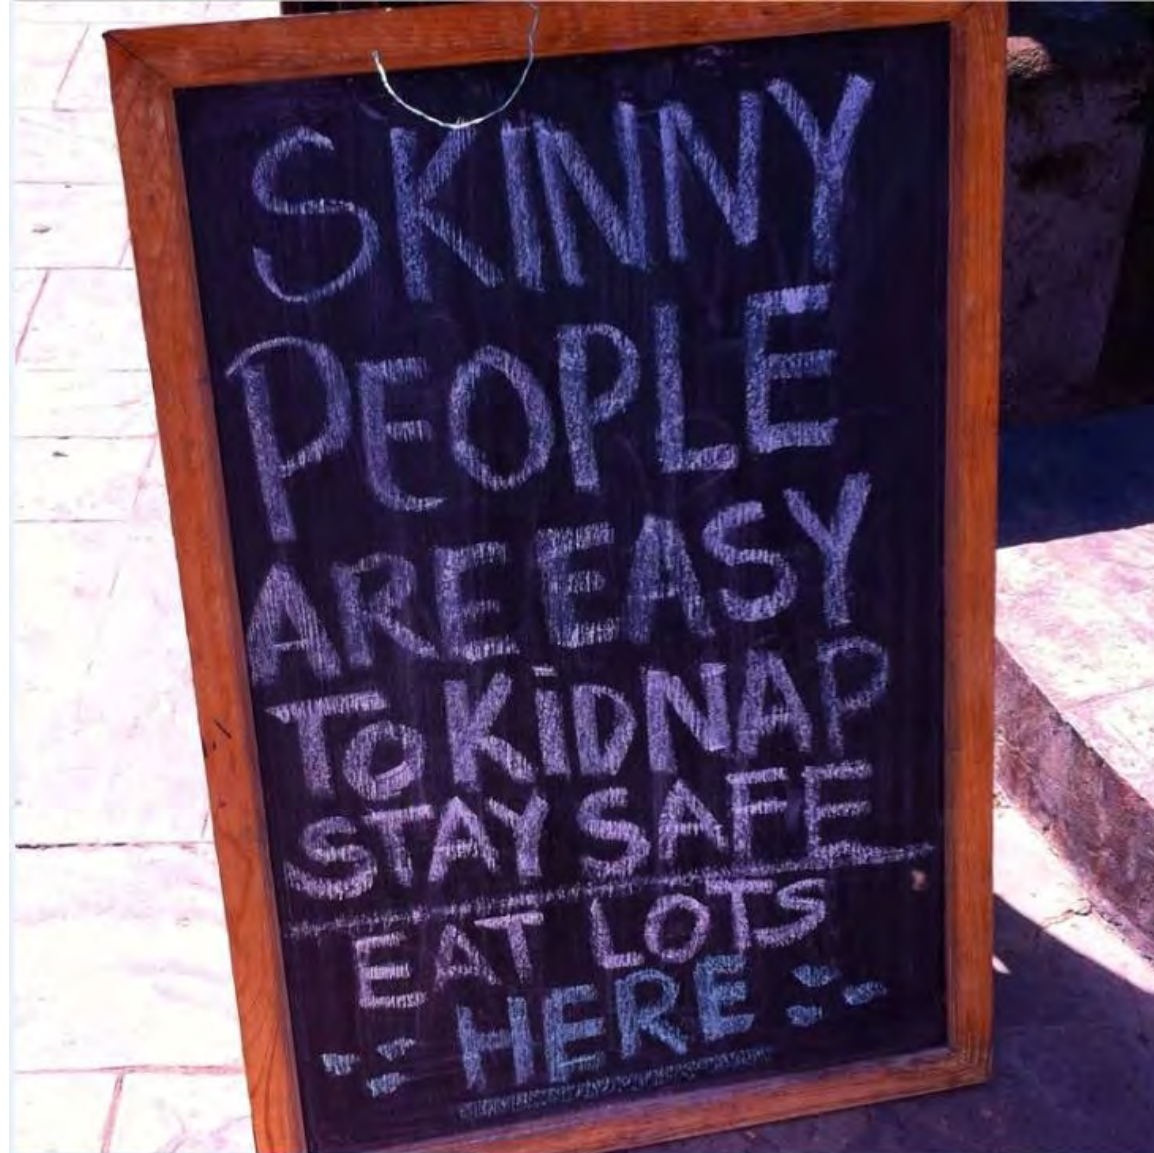 SKINNY
PEOPLE
ARE EASY
TO KiDNAP
STAY SAFE
EAT LOTS
HERE